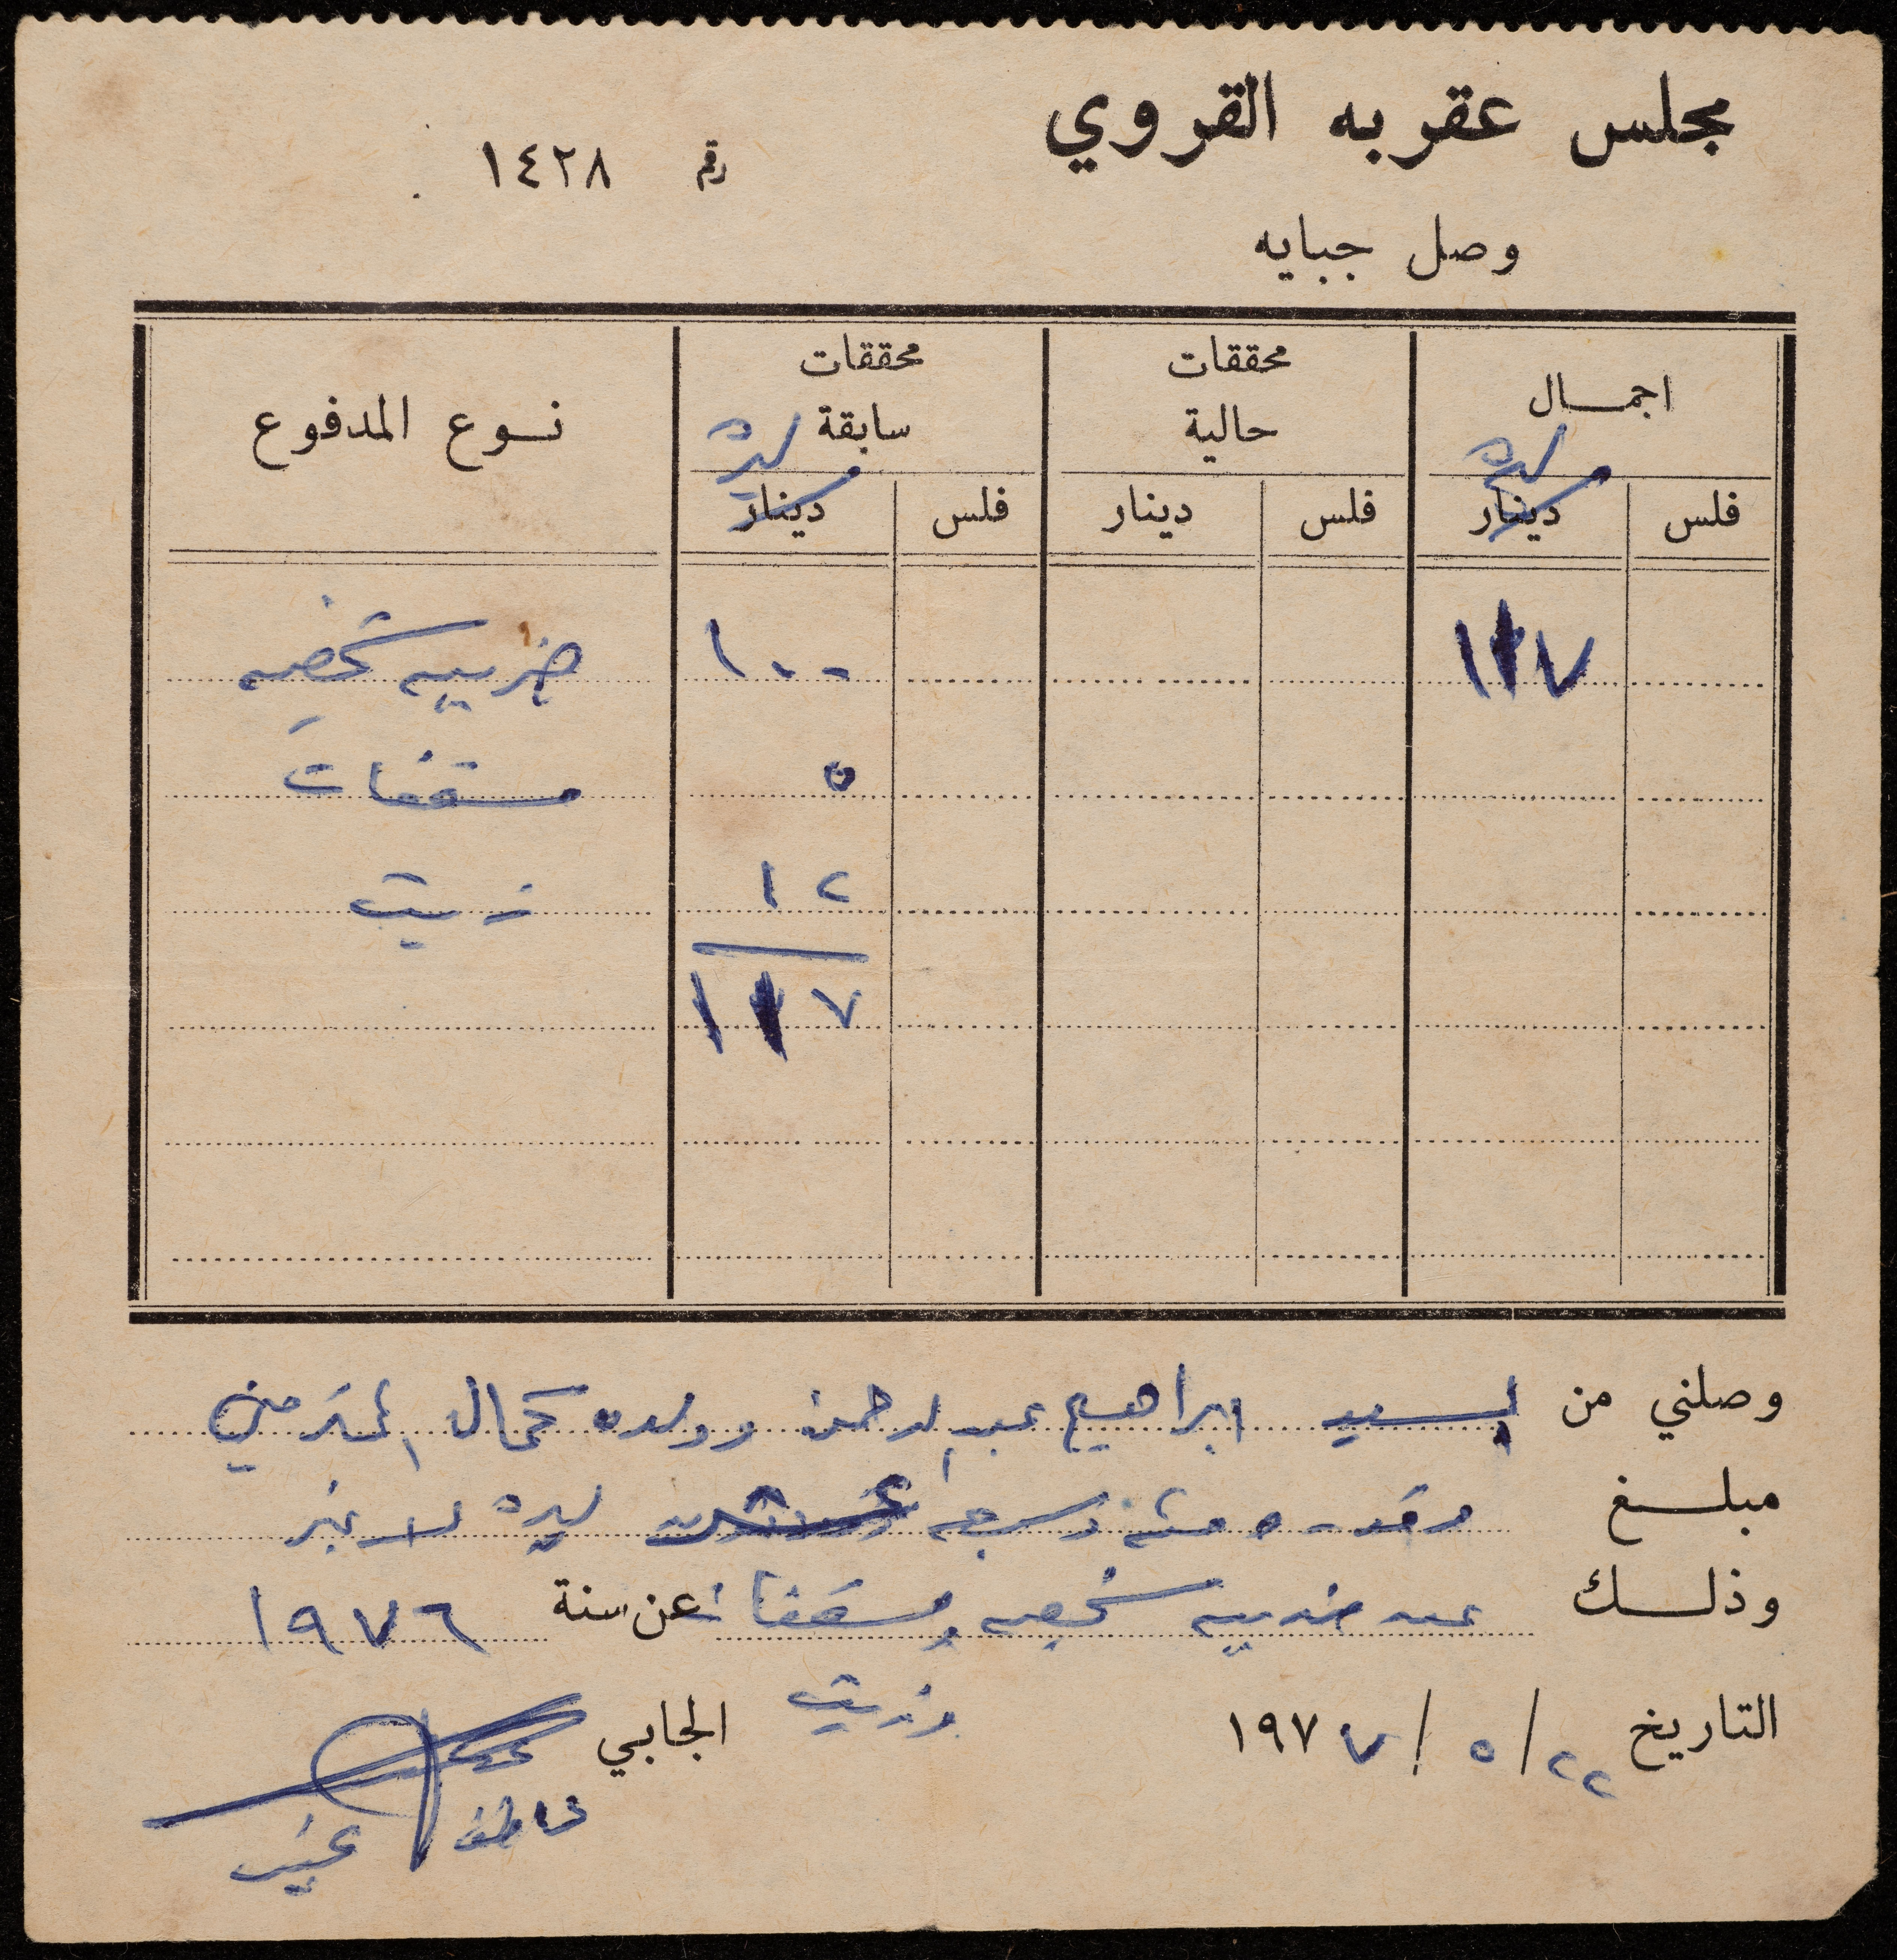 مجلس عقربه القروي
رقم ١٤٢٨
وصل جبايه
اجمال محققات حالية محققات سابقة نوع المدفوع
ليره ليره
فلس دينار فلس دينار فلس دينار
١١٧ ١٠٠ ضريبه شخصيه
٥ مسقفات
١٢ زيت
١١٧
وصلني من السيد ابراهيم عبد الرحمن وولده كمال
مبلغ وقدره مئه وسبعة عشر ليره لا غير
وذلك عن ضريبه شخصيه ومسقفات عن سنة ١٩٧٦
وزيت
التاريخ ٢٢/ ٥ / ١٩٧٧ الجابي